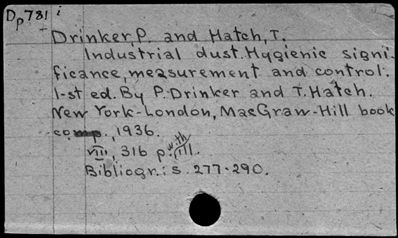 Dp781 i
Drinker, P. and Hatch, T.
Industrial dust. Hygienic signi-
ficance, measurement and control.
1-st ed. By P. Drinker and T. Hatch.
New York-London, MacGraw-Hill book
comp. 1936.
VIII, 316 p. with ill.
Bibliogr.: s. 277-290.